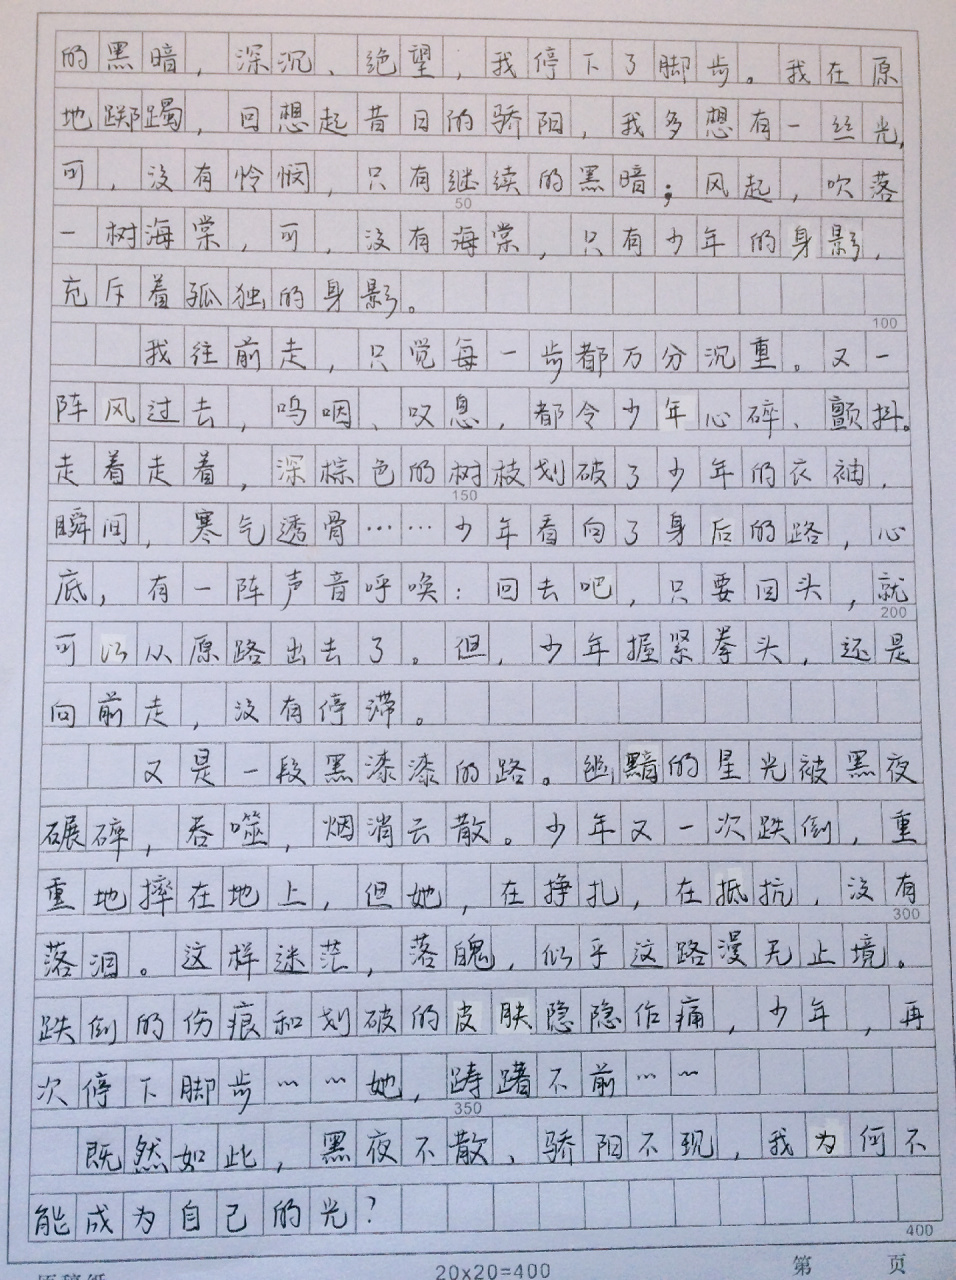 的黑暗，深沉、绝望，我停下了脚步。我在原
地踯躅，回想起昔日的骄阳，我多想有一丝光，
可，没有怜悯，只有继续的黑暗；风起，吹落
50
一树海棠，可，没有海棠，只有少年的身影，
充斥着孤独的身影。
100
我往前走，只觉每一步都万分沉重。又一
阵风过去，呜咽、叹息，都令少年心碎、颤抖。
走着走着，深棕色的树枝划破了少年的衣袖，
150
瞬间，寒气透骨……少年看向了身后的路，心
底，有一阵声音呼唤：回去吧，只要回头，就
200
可以从原路出去了。但，少年握紧拳头，还是
向前走，没有停滞。
又是一段黑漆漆的路。幽黯的星光被黑夜
碾碎，吞噬，烟消云散。少年又一次跌倒，重
重地摔在地上，但她，在挣扎，在抵抗，没有
300
落泪。这样迷茫，落魄，似乎这路漫无止境。
跌倒的伤痕和划破的皮肤隐隐作痛，少年，再
次停下脚步……她，踌躇不前……
350
既然如此，黑夜不散、骄阳不现，我为何不
能成为自己的光？
400
原稿纸 20x20=400 第 页